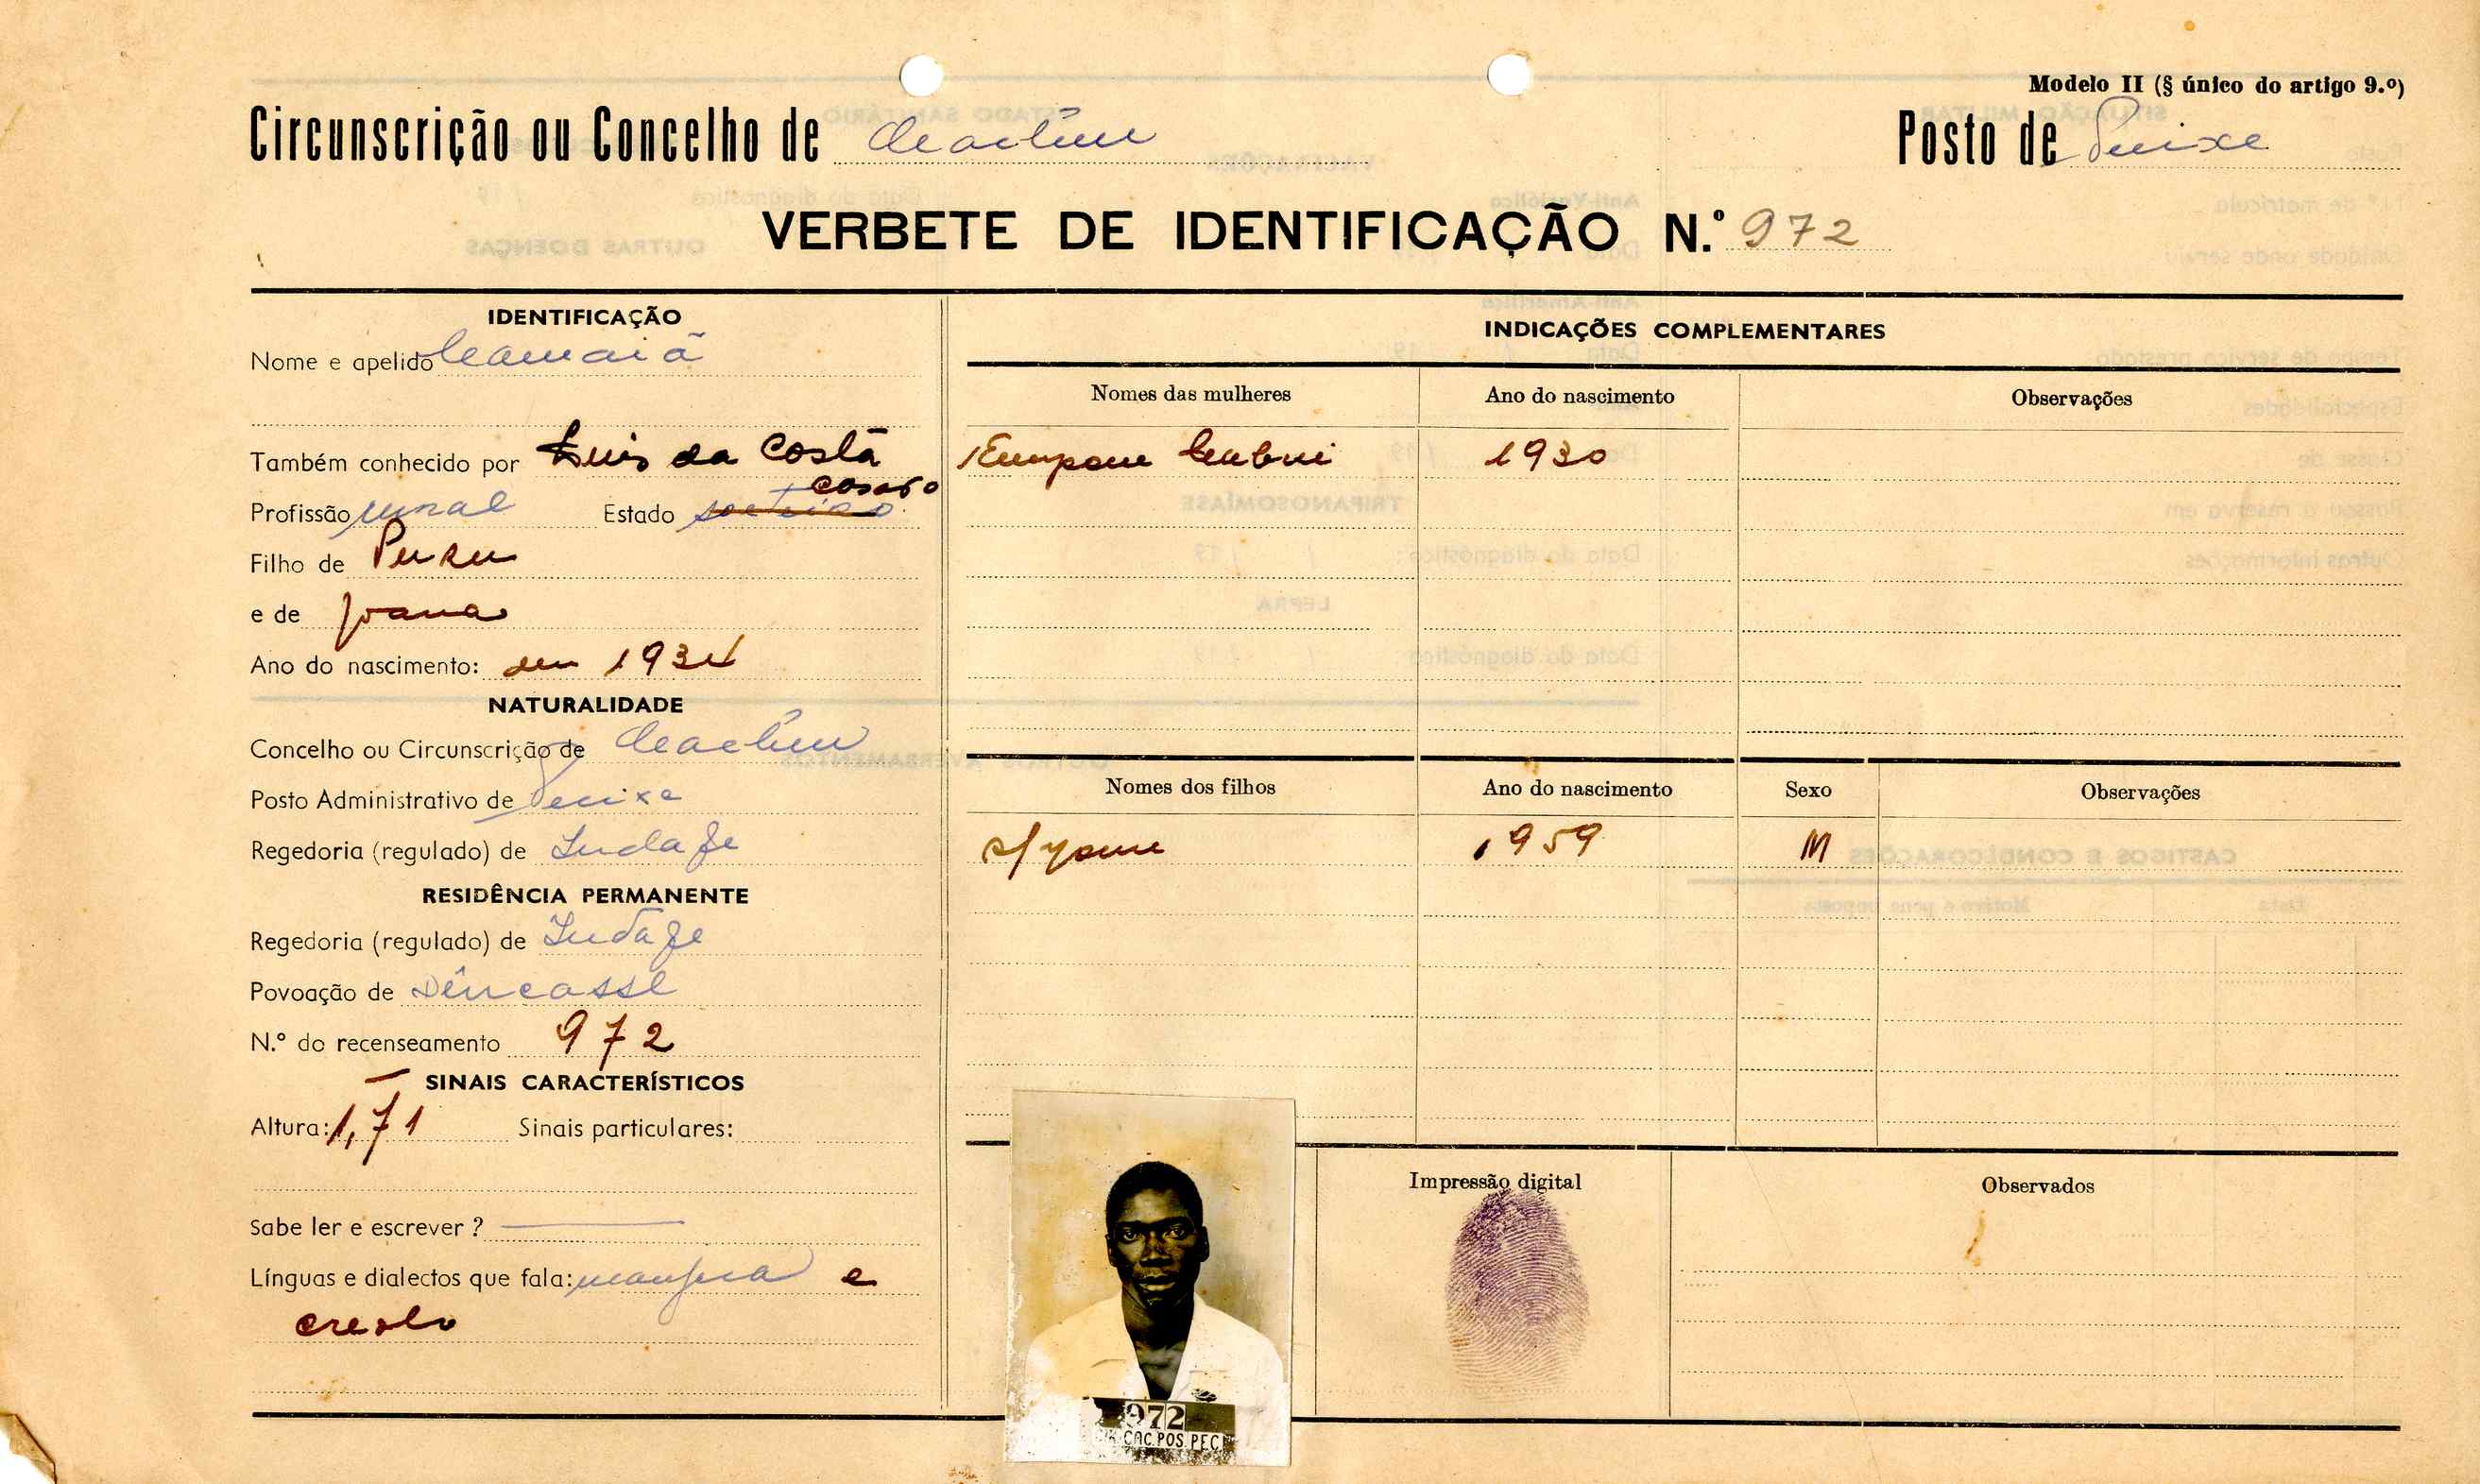 Modelo II (§ único do artigo 9.º)
Circunscrição ou Concelho de Cacheu
Posto de Pecixe
VERBETE DE IDENTIFICAÇÃO N.º 972
IDENTIFICAÇÃO
Nome e apelido
Também conhecido por Luis da Costa
casado
Profissão rural Estado solteiro
Filho de
e de Joana
Ano do nascimento: em 1934
NATURALIDADE
Concelho ou Circunscrição de Cacheu
Posto Administrativo de Pecixe
Regedoria (regulado) de Indafe
RESIDÊNCIA PERMANENTE
Regedoria (regulado) de Indafe
Povoação de
N.º do recenseamento 972
SINAIS CARACTERÍSTICOS
Altura: 1,71 Sinais particulares:
Sabe ler e escrever ?
Línguas e dialectos que fala: manjaca e
creolo
INDICAÇÕES COMPLEMENTARES
Nomes das mulheres Ano do nascimento Observações
1930
Nomes dos filhos Ano do nascimento Sexo Observações
s/nome 1959 M
Impressão digital
Observados
972
CAC.POS.PEC